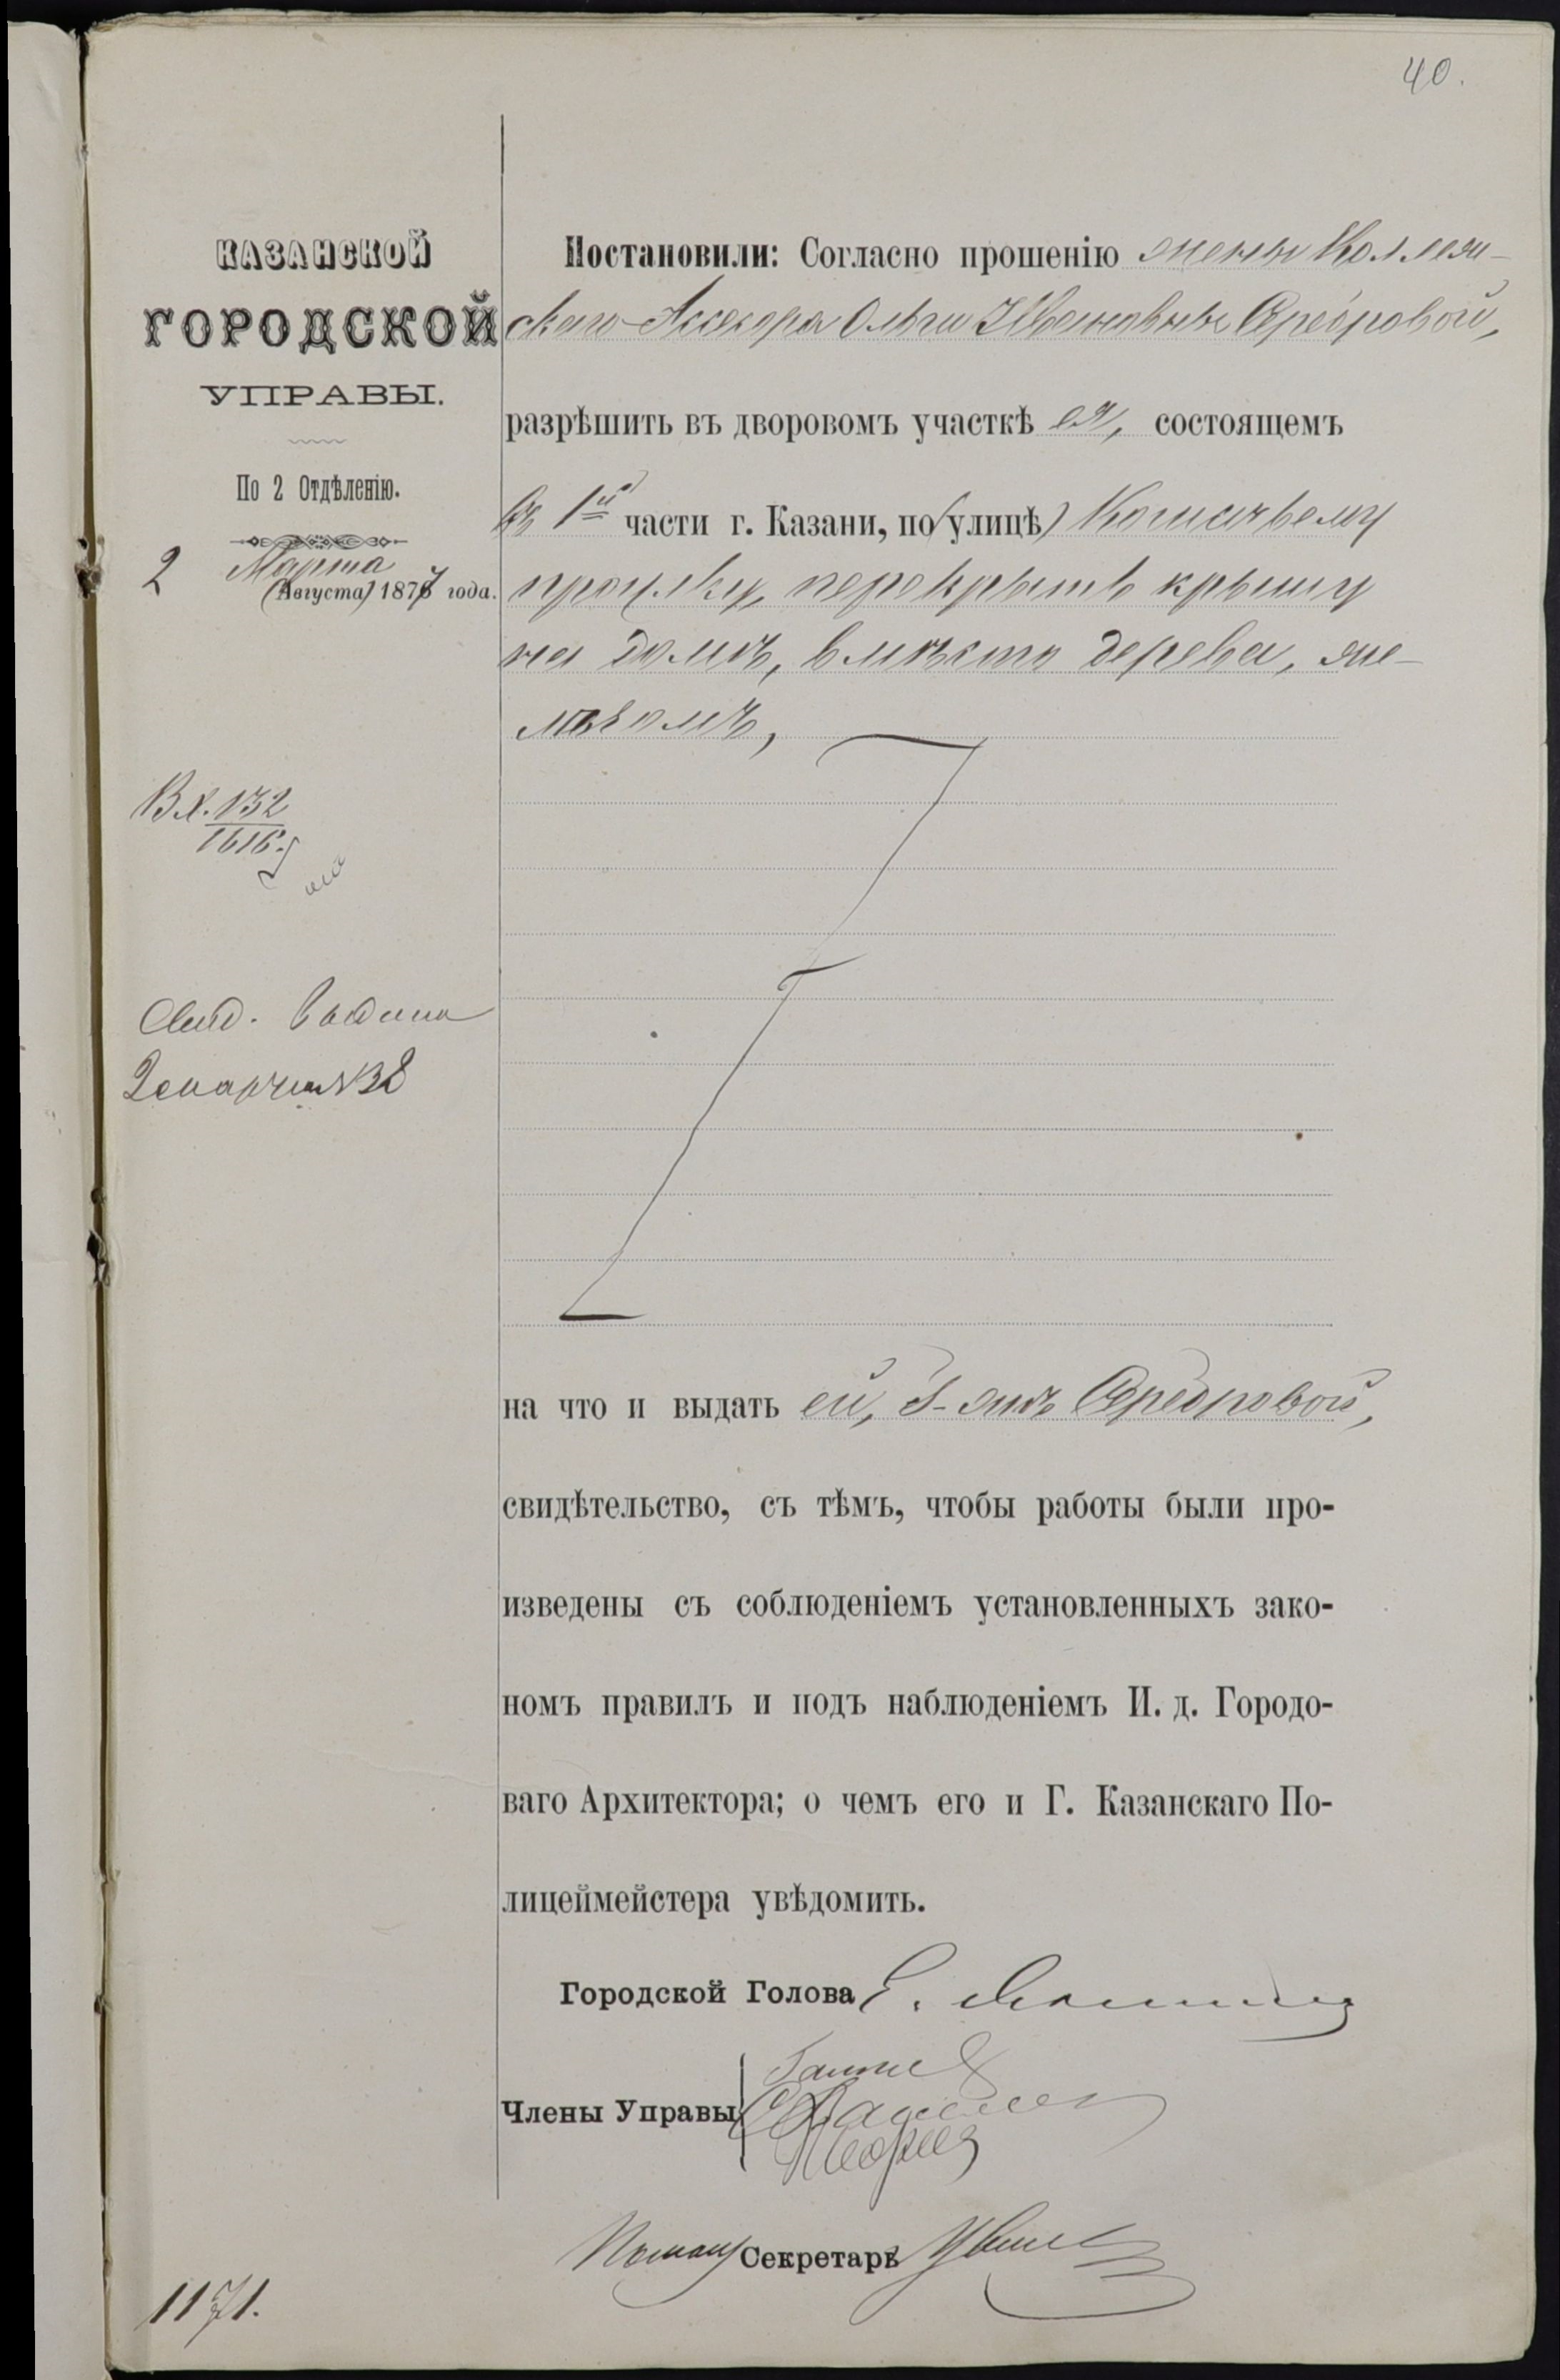 40.
КАЗАНСКОЙ
ГОРОДСКОЙ
УПРАВЫ.
По 2 Отдѣленію.
2 Марта
(Августа) 1877 года.
Вх. 132
1616.
Свид. выдана
2 марта №38
Постановили: Согласно прошенію жены Коллеж-
скаго Ассесора Ольги Ивановны Серебровой,
разрѣшить въ дворовомъ участкѣ ея, состоящемъ
въ 1й части г. Казани, по (улицѣ)
проулку, перекрыть крышу
на домѣ, вмѣсто дерева, же-
лѣзомъ,
на что и выдать ей, Г-жѣ Серебровой,
свидѣтельство, съ тѣмъ, чтобы работы были про-
изведены съ соблюденіемъ установленныхъ зако-
номъ правилъ и подъ наблюденіемъ И. д. Городо-
ваго Архитектора; о чемъ его и Г. Казанскаго По-
лицеймейстера увѣдомить.
Городской Голова
Члены Управы
Секретарь
1171.